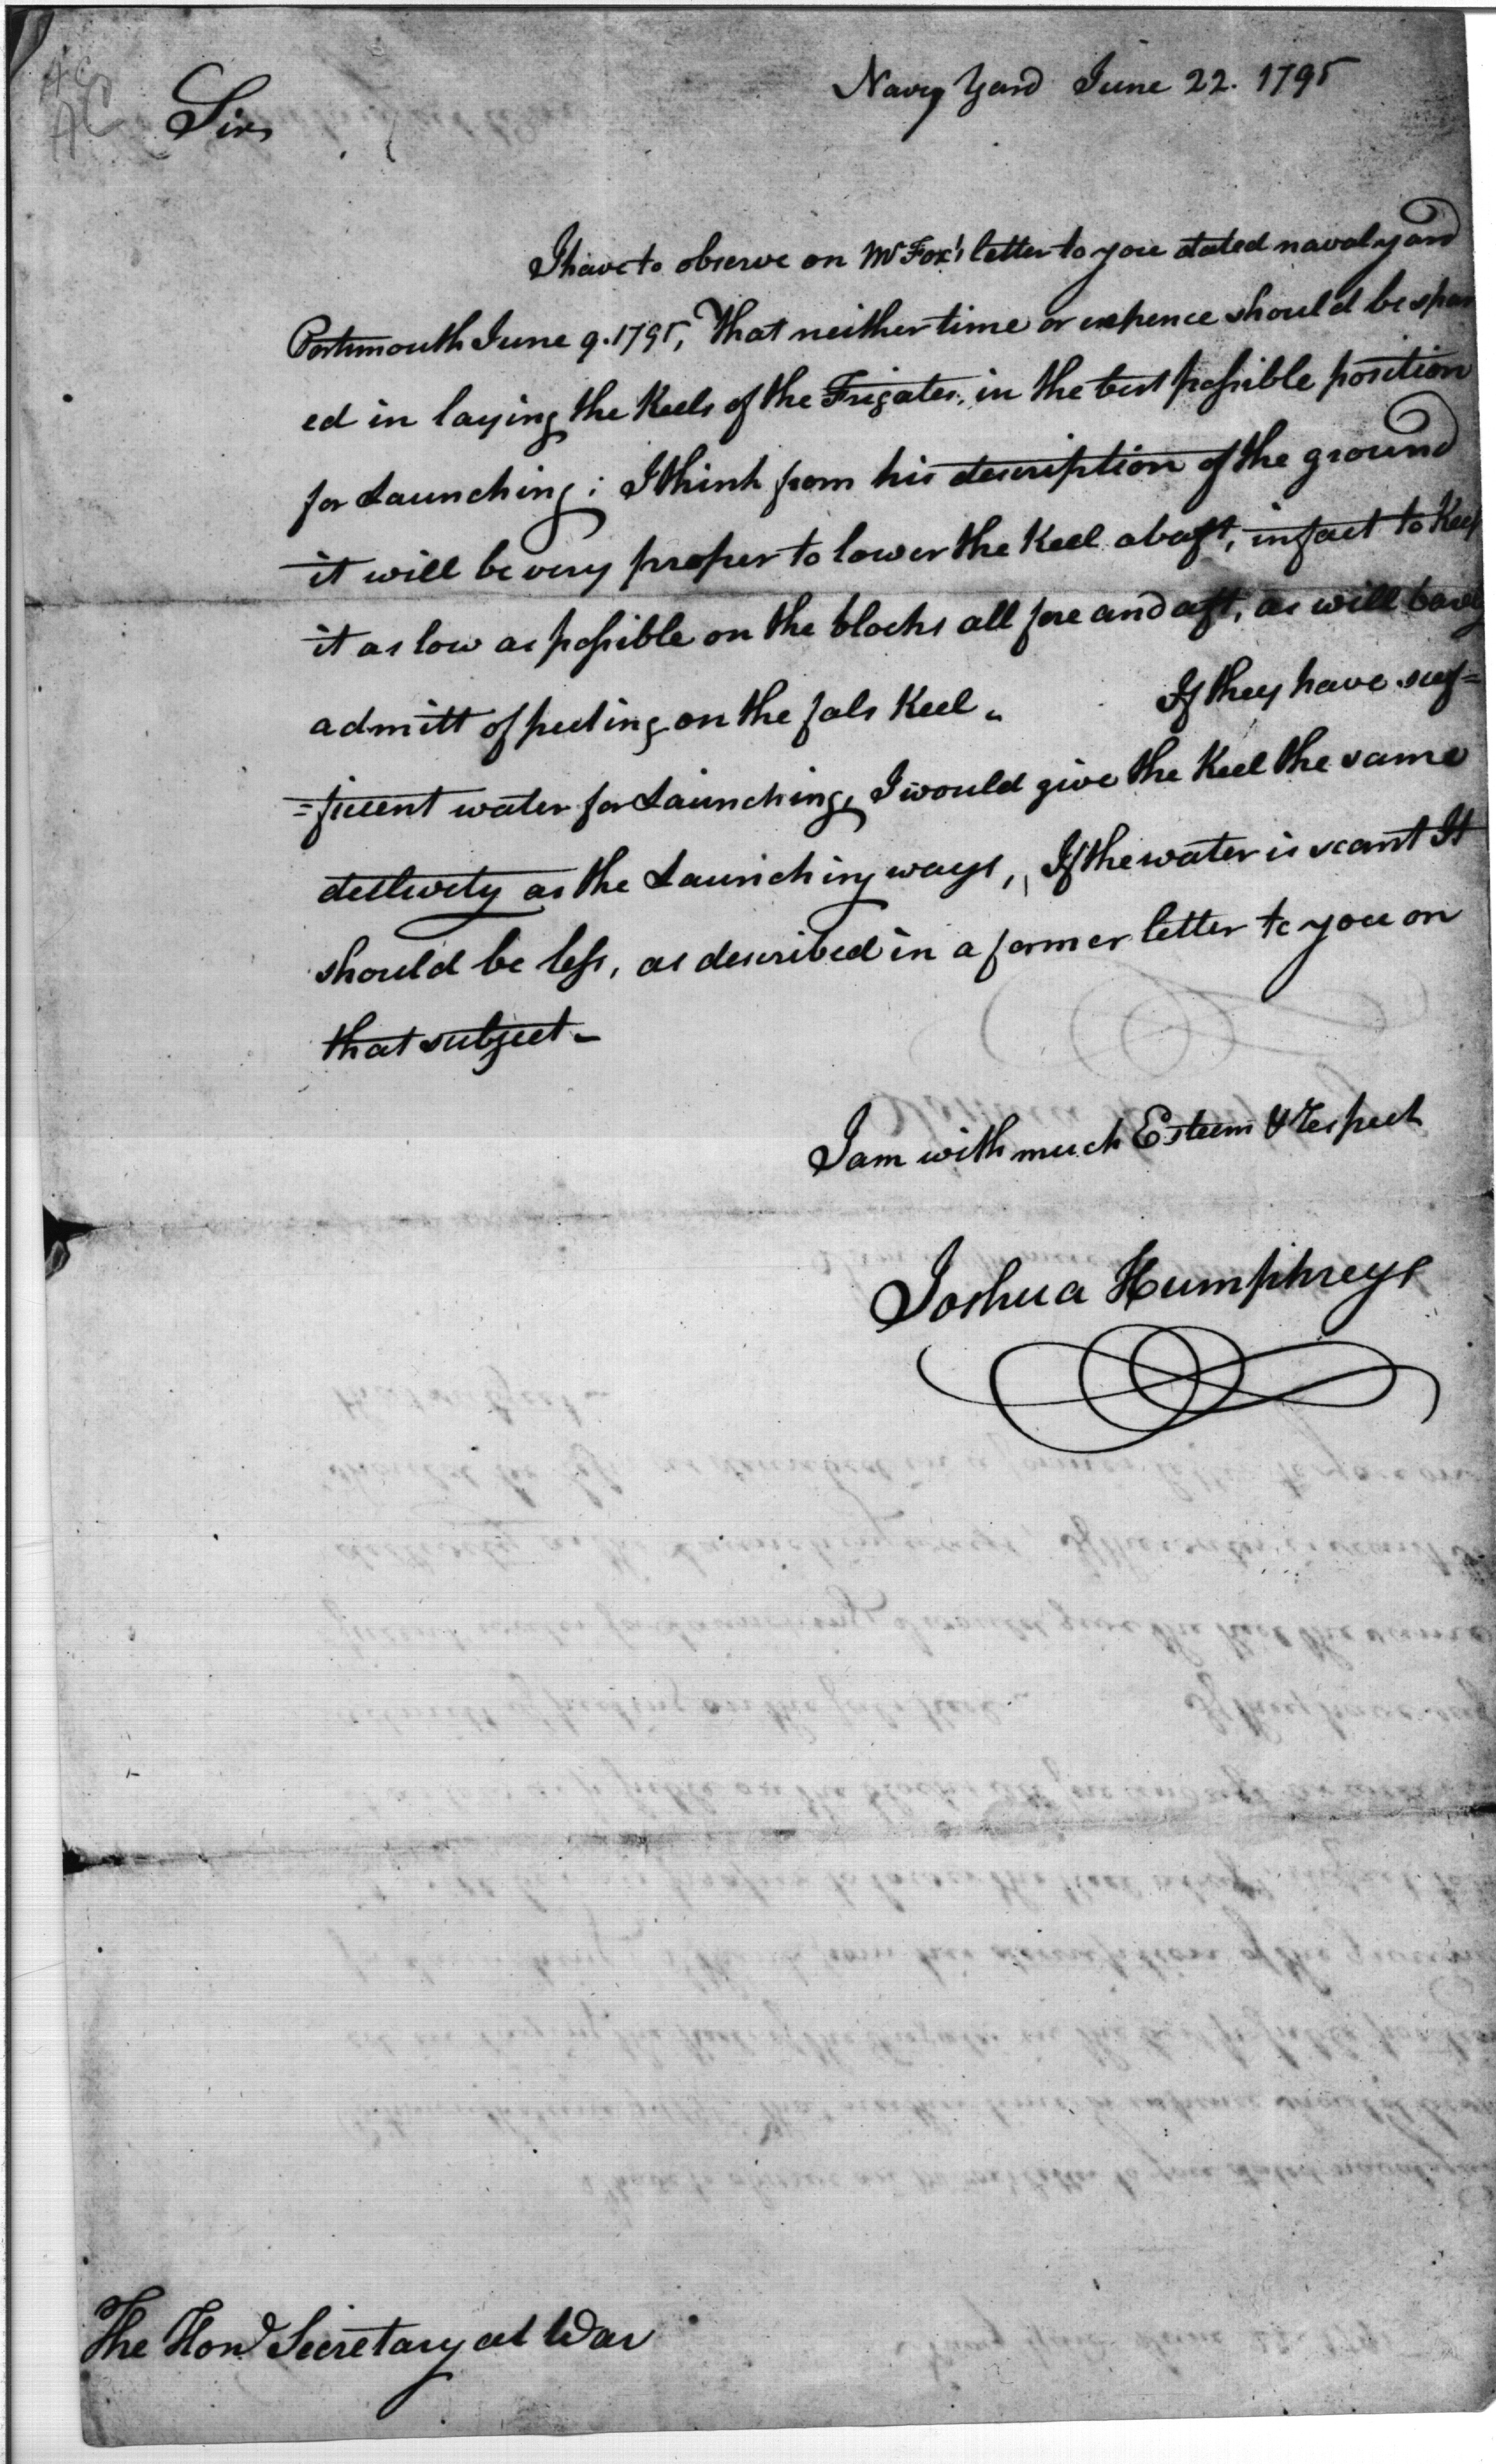 Navy Yard June 22. 1795
Sir
I have to observe on Mr Fox's letter to you dated naval yard
Portsmouth June 9. 1795, That neither time or expence should be spar
ed in laying the Keels of the Frigates, in the best possible position
for Launching; I think from his description of the ground
it will be very proper to lower the Keel abaft, in fact to Keep
it as low as possible on the blocks all fore and aft, as will barely
admitt of puting on the fals Keel. If they have suf=
=ficent water for Launching, I would give the Keel the same
declivity as the Launching ways, If the water is scant It
should be less, as described in a former letter to you on
that subject -
I am with much Esteem & respect
Joshua Humphreys
The Hond Secretary at War